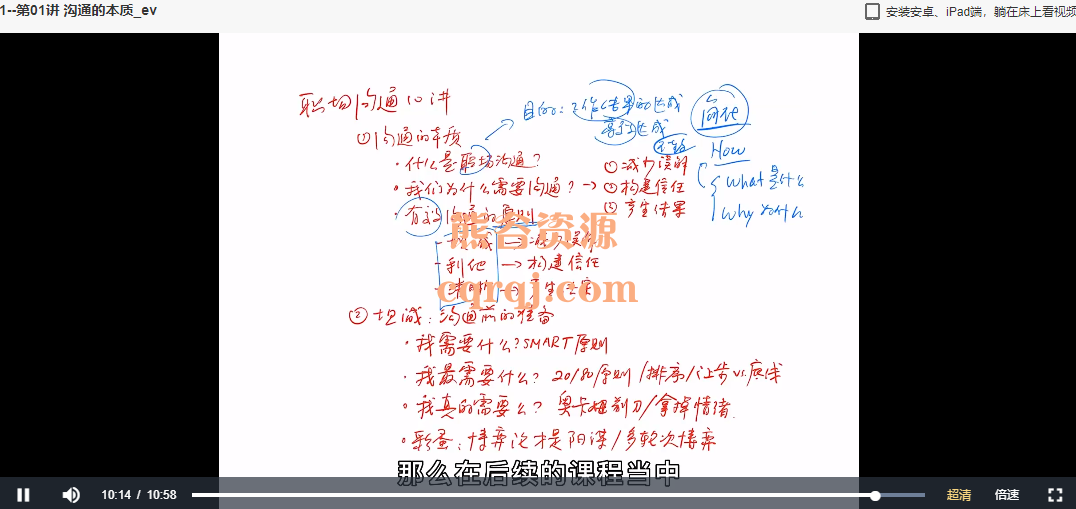 1--第01讲 沟通的本质_ev
安装安卓、iPad端，躺在床上看视频
职场沟通10讲
目的：工作结果的达成
简他
①沟通的本质
How
·什么是职场沟通？
①减少误解
what 是什么
·我们为什么需要沟通？→
②构建信任
why 为什么
·有效沟通的原则
③产生结果
熊谷资源
- 坦诚 → 减少误解
- 利他 → 构建信任
cgrqj.com
②坦诚：沟通前的准备
·我需要什么？SMART原则
·我最需要什么？20/80原则/排序/让步vs.底线
·我真的需要么？奥卡姆剃刀/拿掉情绪
·彩蛋：博弈论才是阳谋/多轮次博弈
那么在后续的课程当中
10:14 / 10:58
超清
倍速